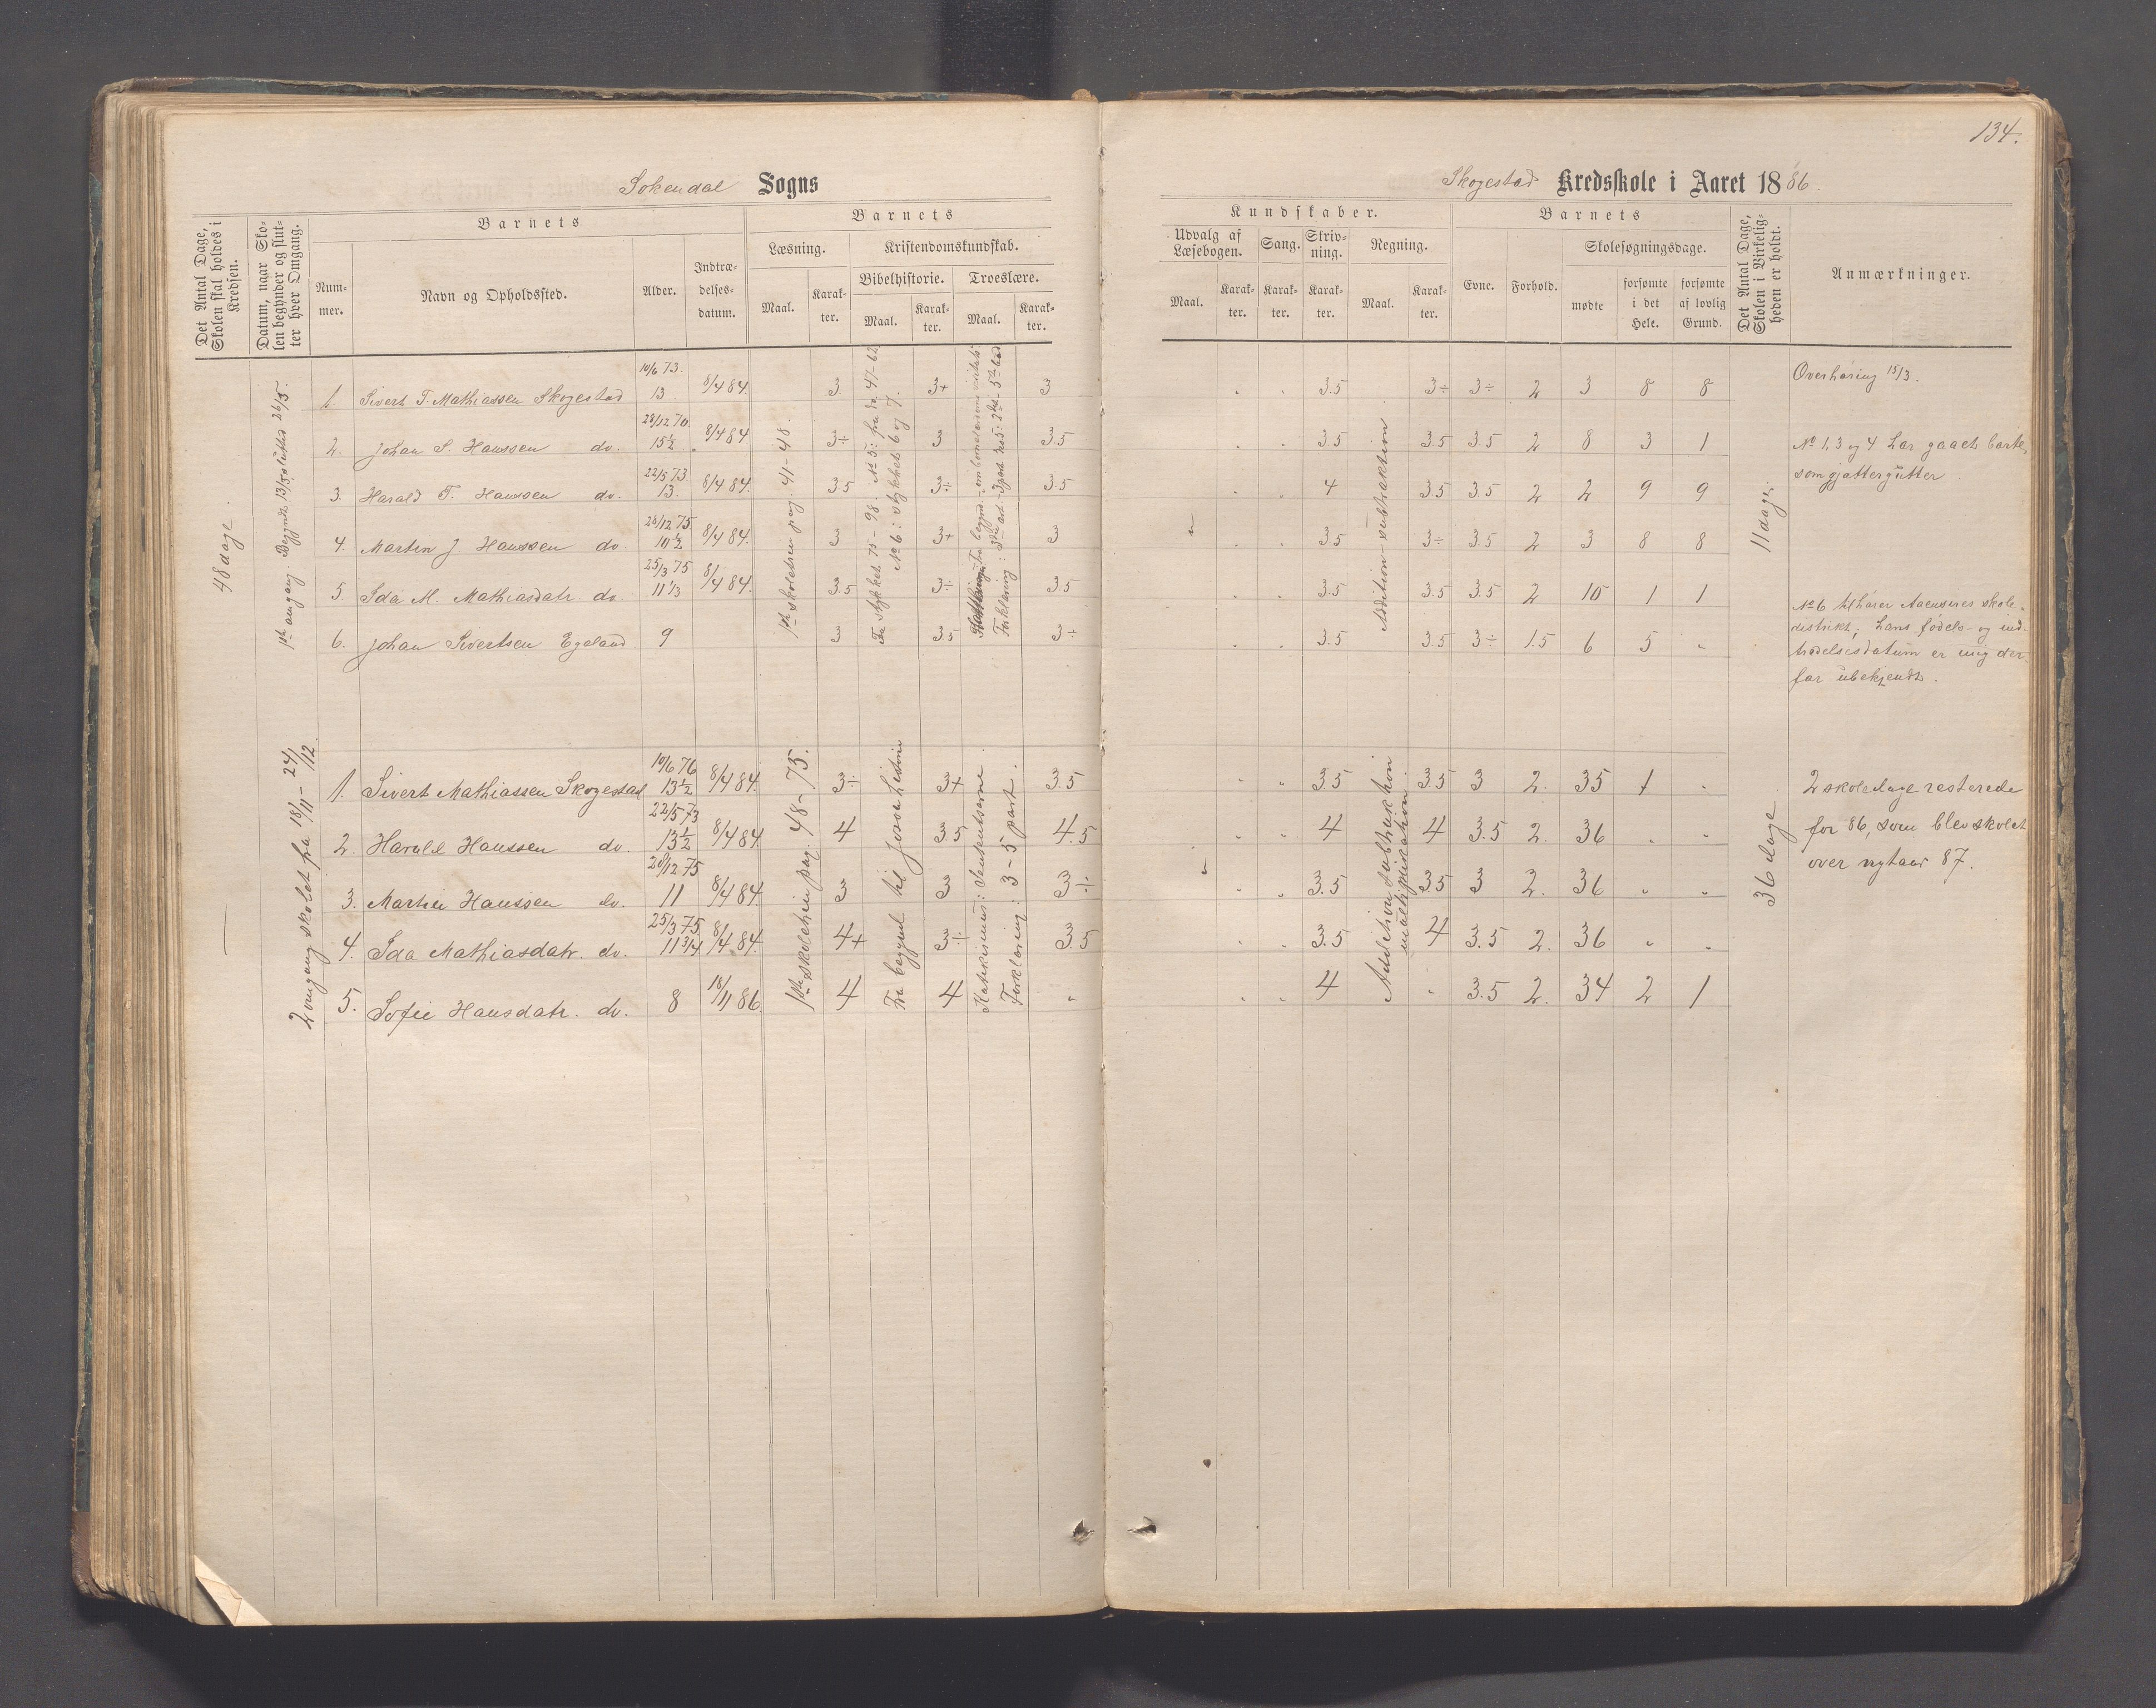 134.
Sokendal Sogns
Skogestad Kredsskole i Aaret 1886.
Det Antal Dage, Skolen skal holdes i Kredsen.
Datum, naar Skolen begynder og slutter hver Omgang.
Barnets
Nummer.
Navn og Opholdssted.
Alder.
Indtrædelsesdatum.
Barnets
Læsning.
Kristendomskundskab.
Bibelhistorie.
Troeslære.
Maal.
Karakter.
Maal.
Karakter.
Maal.
Karakter.
Kundskaber.
Udvalg af Læsebogen.
Sang.
Skrivning.
Regning.
Maal.
Karakter.
Karakter.
Karakter.
Maal.
Karakter.
Barnets
Evne.
Forhold.
Skolesøgningsdage.
mødte
forsømte i det Hele.
forsømte af lovlig Grund.
Det Antal Dage, Skolen i Virkeligheden er holdt.
Anmærkninger.
48 dage.
1ste omgang. Begyndt 13/5 slutted 26/5.
1ste skoletrin pag. 41-48.
Addition - subtraktion.
11 dage.
1. Sivert T. Mathiassen Skogestad 10/6 73. 13 8/4 84. 3. 3+ 3 3.5 3÷ 3÷ 2 3 8 8
2. Johan S. Hanssen do. 28/12 70. 15½ 8/4 84. 3÷ 3 3.5 3.5 3.5 3.5 2 8 3 1
3. Harald T. Hanssen do. 22/5 73 13. 8/4 84. 3.5 3÷ 3.5 4 3.5 3.5 2 2 9 9
4. Martin J. Hanssen do. 28/12 75. 10½ 8/4 84. 3 3+ 3 3.5 3÷ 3.5 2 3 8 8
5. Ida M. Mathiasdatr. do. 25/3 75 11 1/3 8/4 84. 3.5 3÷ 3.5 3.5 3.5 3.5 2 10 1 1
6. Johan Sivertsen Egeland 9 3 3.5 3÷ 3.5 3.5 3÷ 1.5 6 5 "
Overhøring 15/3.
No 1, 3 og 4 har gaaet borte
som gjættergutter.
No 6 tilhører Aaensires skole-
distrikt; hans fødels- og ind-
trædelsesdatum er mig der-
for ubekjendt.
2 omgang skolet fra 18/11 - 24/12.
1ste skoletrin pag. 48-75.
Fra begynd. til Josva historie
Katekismus: Sentensene.
Forklaring: 3-5 part.
Addition subtraktion
multiplikation
36 dage
1. Sivert Mathiassen Skogestad 10/6 76 13½ 8/4 84. 3÷ 3+ 3.5 3.5 3.5 3 2. 35 1 "
2. Harald Hanssen do. 22/5 73 13½ 8/4 84. 4 3.5 4.5 4 4 3.5 2. 36 " "
3. Martin Hanssen do. 28/12 75 11 8/4 84. 3 3 3÷ 3.5 3.5 3 2. 36 " "
4. Ida Mathiasdatr. do. 25/3 75 11 3/4 8/4 84 4+ 3÷ 3.5 3.5 4 3.5 2. 36 " "
5. Sofie Hansdatr. do. 8 18/11 86. 4 4 " 4 " 3.5 2. 34 2 1
2 skoledage resterede
for 86, som blev skolet
over nytaar 87.